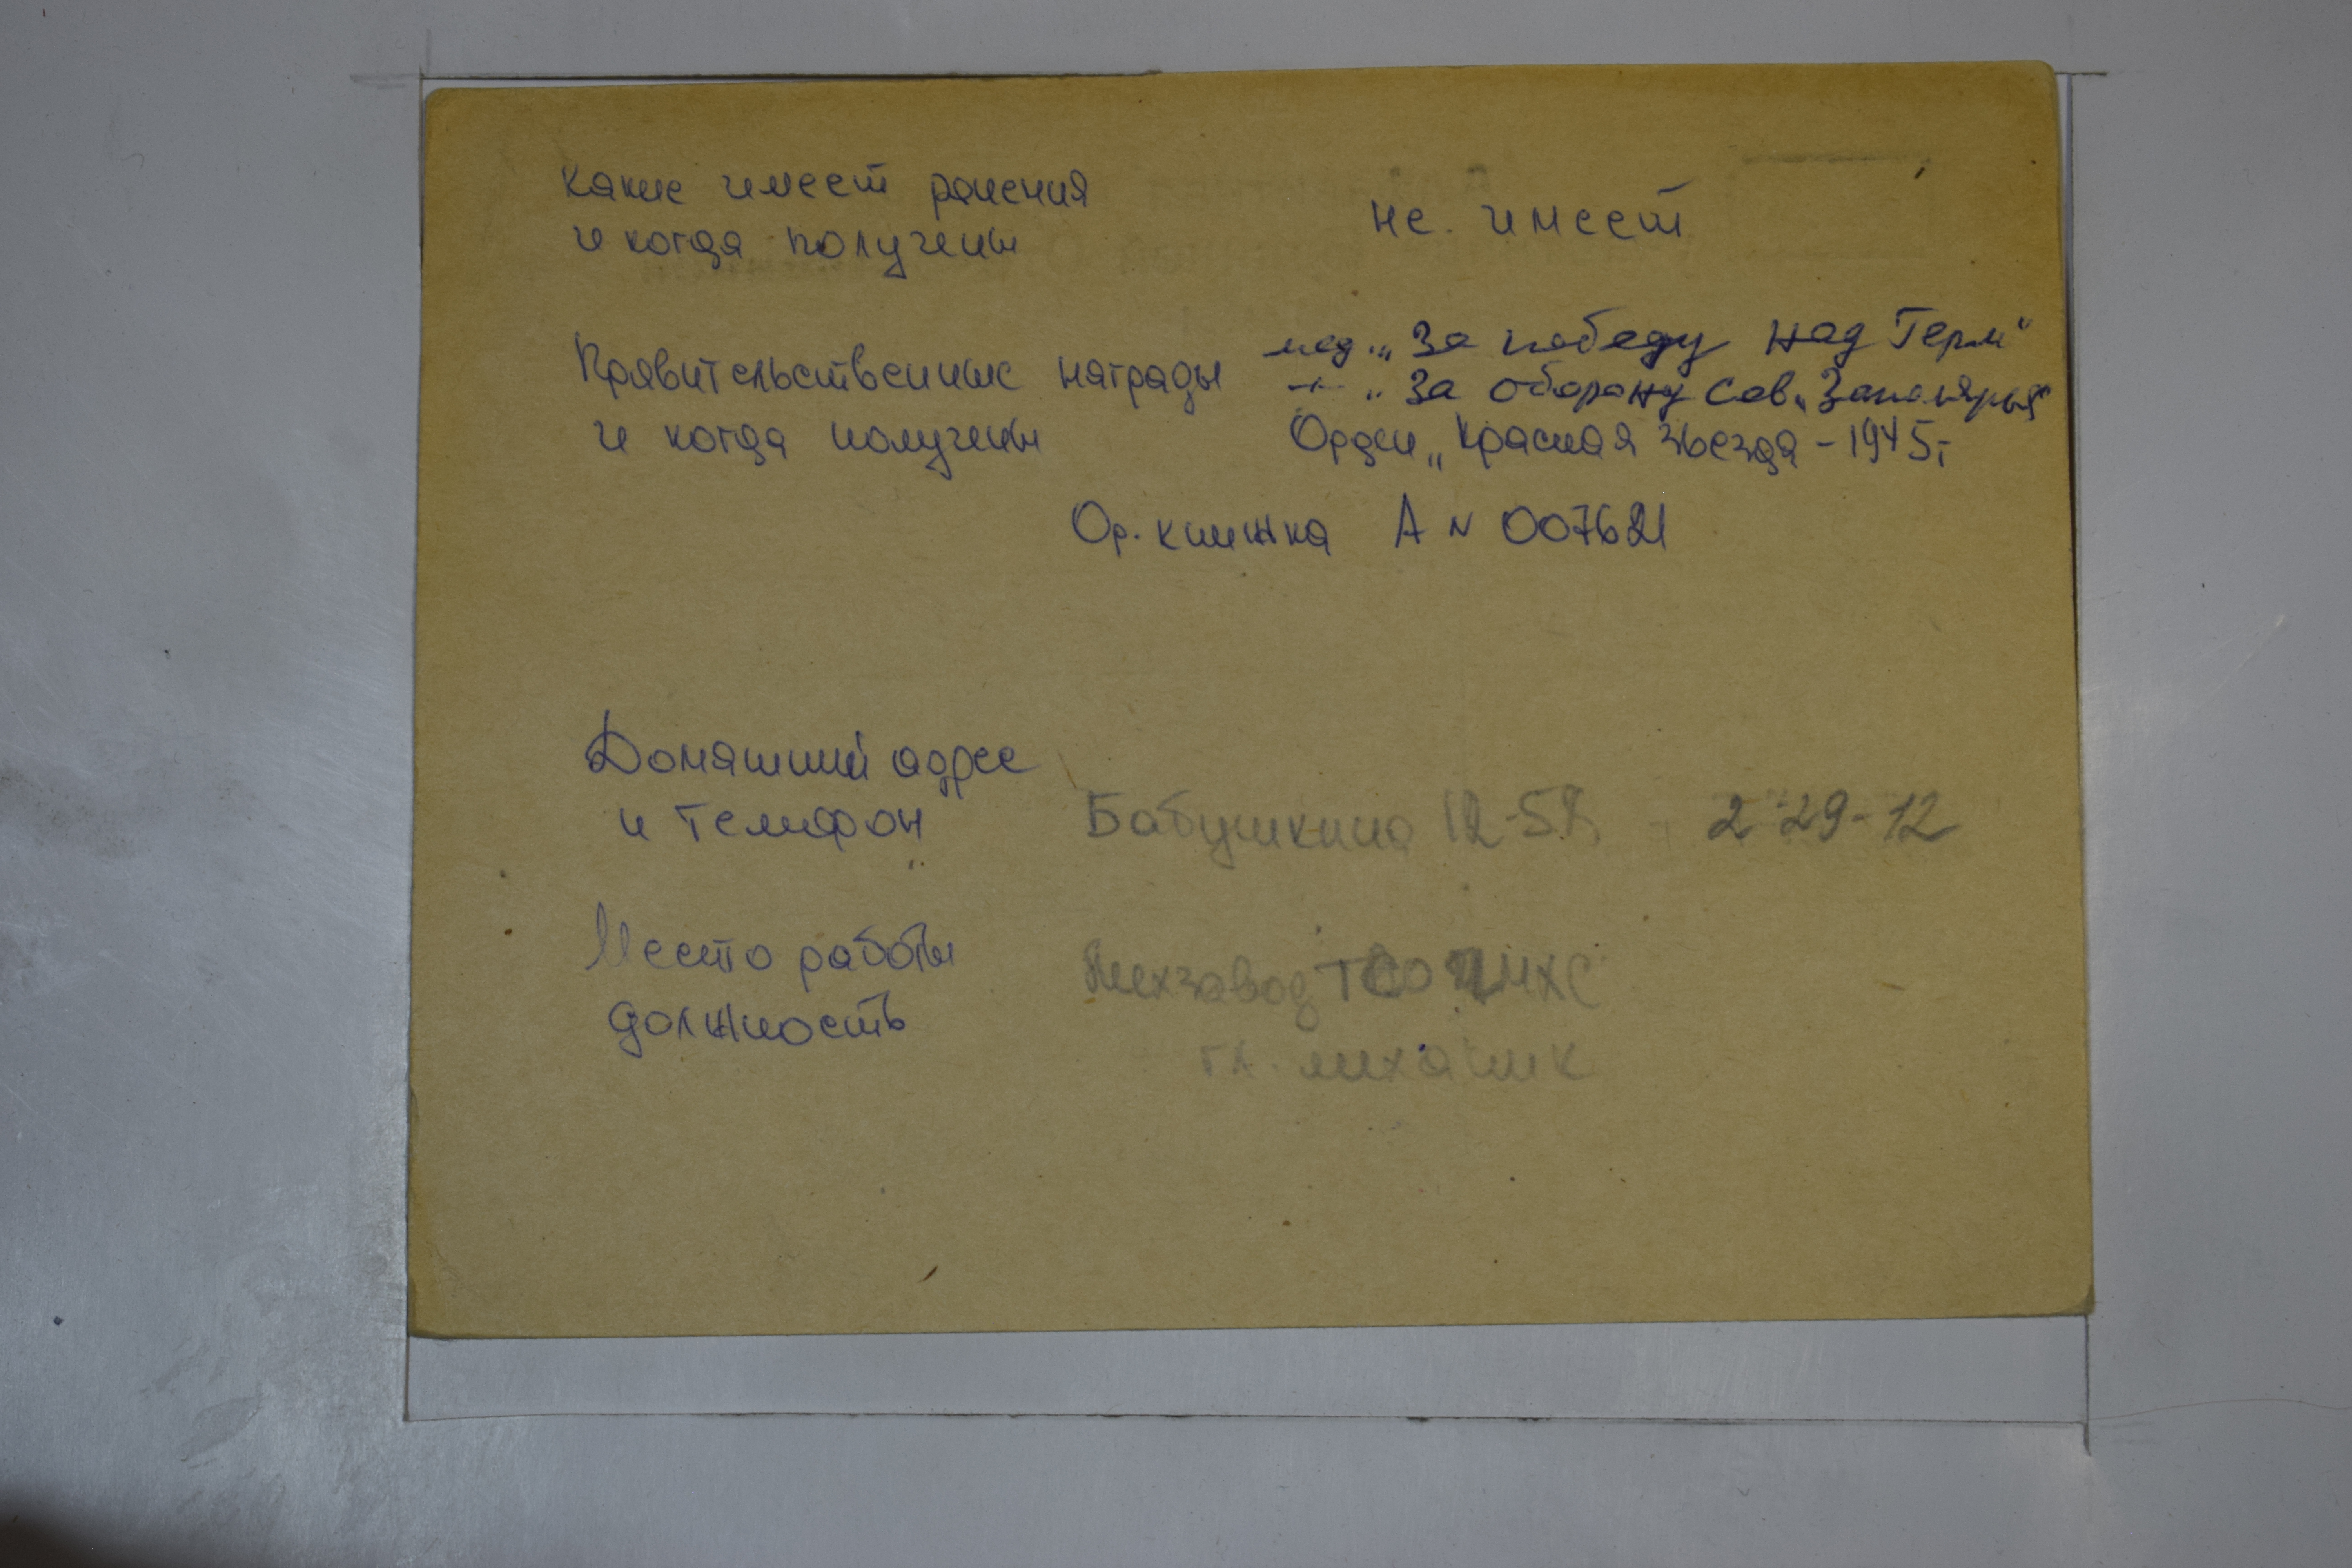 какие имеет ранения
и когда получены
не. имеет
Правительственные награды
и когда получены
мед. „За победу над Герм“
-"- „За оборону Сов. Заполярья“
Орден „Красная звезда - 1945 г
Ор. книжка А N 007621
Домашний адрес
и телефон
Бабушкина 12-58 - 2-29-12
Место работы
должность
Мехзавод ТСО
гл. механик